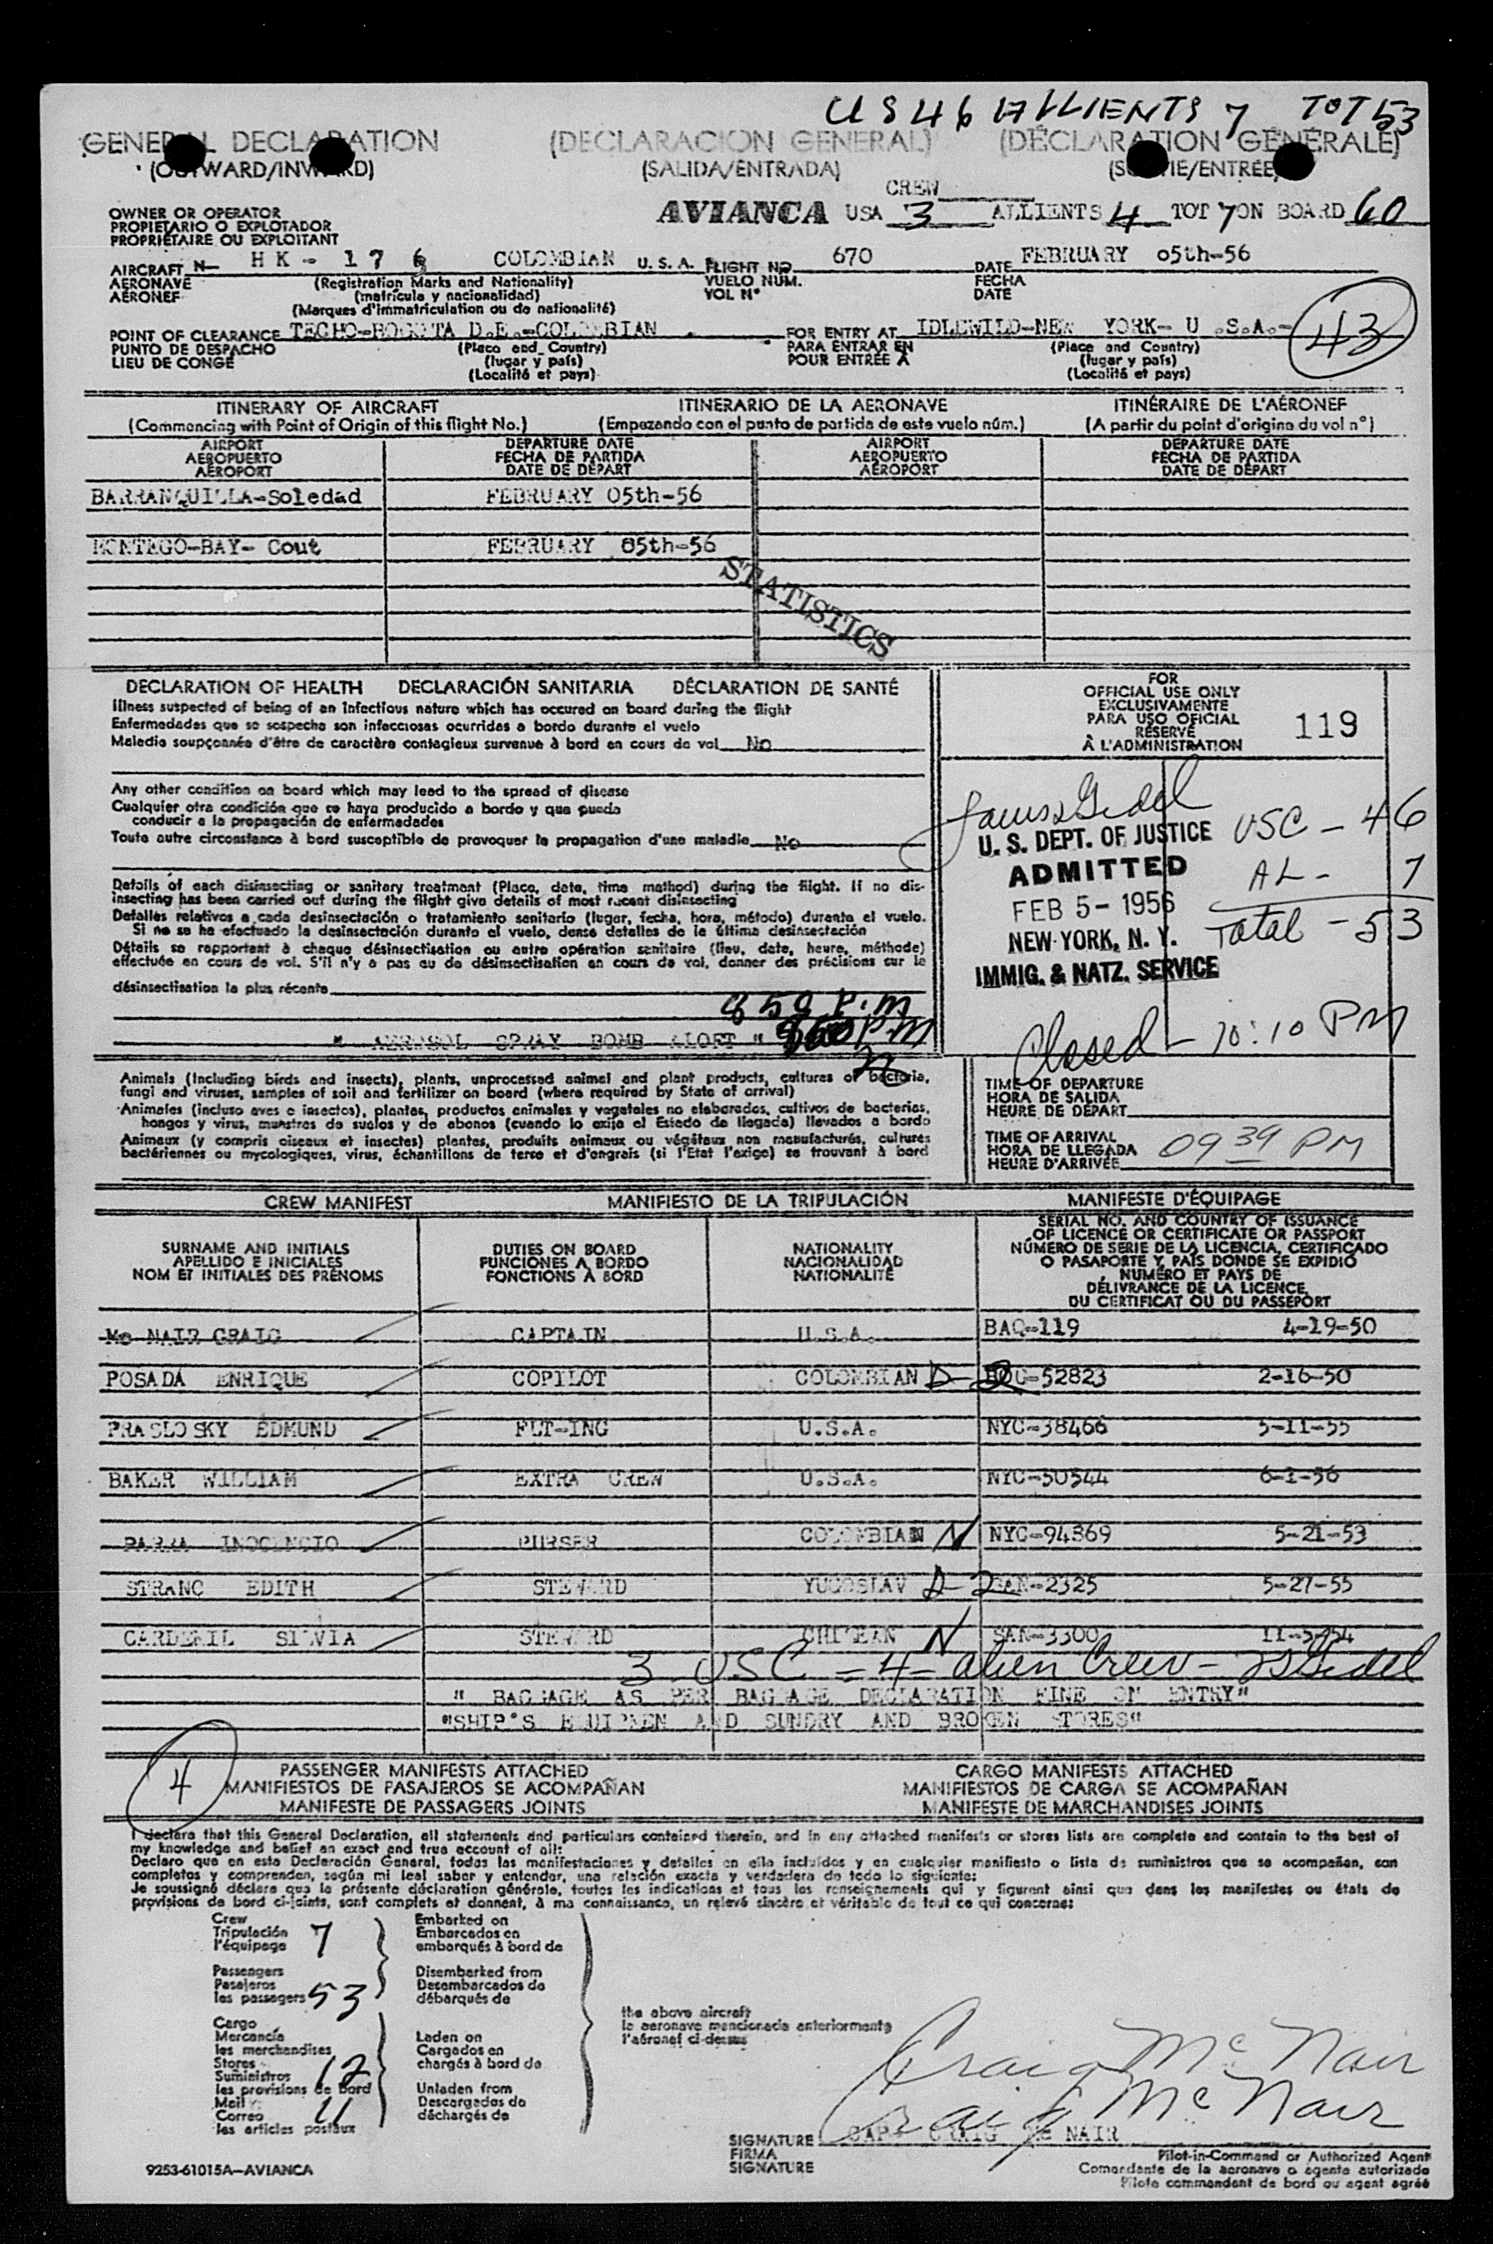 US 46 ALLIENTS 7 TOT 53
GENERAL DECLARATION (DECLARACION GENERAL) (DÉCLARATION GÉNÉRALE)
(OUTWARD/INWARD) (SALIDA/ENTRADA) (SORTIE/ENTRÉE)
CREW
AVIANCA USA 3 ALLIENTS 4 TOT 7 ON BOARD 60
OWNER OR OPERATOR
PROPIETARIO O EXPLOTADOR
PROPRIÉTAIRE OU EXPLOITANT
AIRCRAFT N HK - 176 COLOMBIAN U.S.A. FLIGHT NO. 670 DATE FEBRUARY 05th-56
AERONAVE (Registration Marks and Nationality) VUELO NUM. FECHA
AÉRONEF (matrícula y nacionalidad) VOL N° DATE
(Marques d'immatriculation ou de nationalité)
POINT OF CLEARANCE TECHO-BOGOTA D.E.-COLOMBIAN FOR ENTRY AT IDLEWILD-NEW YORK- U.S.A.-
43
PUNTO DE DESPACHO (Place and Country) PARA ENTRAR EN (Place and Country)
LIEU DE CONGÉ (lugar y país) POUR ENTRÉE À (lugar y país)
(Localité et pays) (Localité et pays)
ITINERARY OF AIRCRAFT ITINERARIO DE LA AERONAVE ITINÉRAIRE DE L'AÉRONEF
(Commencing with Point of Origin of this flight No.) (Empezando con el punto de partida de este vuelo núm.) (A partir du point d'origine du vol n°)
AIRPORT DEPARTURE DATE AIRPORT DEPARTURE DATE
AEROPUERTO FECHA DE PARTIDA AEROPUERTO FECHA DE PARTIDA
AÉROPORT DATE DE DÉPART AÉROPORT DATE DE DÉPART
BARRANQUILLA-Soledad FEBRUARY 05th-56
MONTEGO-BAY- Cout FEBRUARY 05th-56
STATISTICS
DECLARATION OF HEALTH DECLARACIÓN SANITARIA DÉCLARATION DE SANTÉ
Illness suspected of being of an infectious nature which has occured on board during the flight
Enfermedades que se sospecha son infecciosas ocurridas a bordo durante el vuelo
Maladie soupçonnée d'être de caractère contagieux survenue à bord en cours de vol No
Any other condition on board which may lead to the spread of disease
Cualquier otra condición que se haya producido a bordo y que pueda
conducir a la propagación de enfermedades
Toute autre circonstance à bord susceptible de provoquer la propagation d'une maladie No
Details of each disinsecting or sanitary treatment (Place, date, time method) during the flight. If no dis-
insecting has been carried out during the flight give details of most recent disinsecting
Detalles relativos a cada desinsectación o tratamiento sanitario (lugar, fecha, hora, método) durante el vuelo.
Si no se ha efectuado la desinsectación durante el vuelo, dense detalles de la última desinsectación
Détails se rapportant à chaque désinsectisation ou autre opération sanitaire (lieu, date, heure, méthode)
effectuée en cours de vol. S'il n'y a pas eu de désinsectisation en cours de vol, donner des précisions sur la
désinsectisation la plus récente
" AEROSOL SPRAY BOMB ALOFT "
FOR
OFFICIAL USE ONLY
EXCLUSIVAMENTE
PARA USO OFICIAL
RÉSERVÉ
À L'ADMINISTRATION
119
U. S. DEPT. OF JUSTICE
ADMITTED
FEB 5 - 1956
NEW YORK, N. Y.
IMMIG. & NATZ. SERVICE
USC - 46
AL - 7
Total - 53
Closed - 10:10 PM
Animals (Including birds and insects), plants, unprocessed animal and plant products, cultures of bacteria,
fungi and viruses, samples of soil and fertilizer on board (where required by State of arrival)
Animales (incluso aves e insectos), plantas, productos animales y vegetales no elaborados, cultivos de bacterias,
hongos y virus, muestras de suelos y de abonos (cuando lo exija el Estado de llegada) llevados a bordo
Animaux (y compris oiseaux et insectes) plantes, produits animaux ou végétaux non manufacturés, cultures
bactériennes ou mycologiques, virus, échantillons de terre et d'engrais (si l'Etat l'exige) se trouvant à bord
TIME OF DEPARTURE
HORA DE SALIDA
HEURE DE DÉPART
TIME OF ARRIVAL
HORA DE LLEGADA 09 39 PM
HEURE D'ARRIVÉE
CREW MANIFEST MANIFIESTO DE LA TRIPULACIÓN MANIFESTE D'ÉQUIPAGE
SURNAME AND INITIALS
APELLIDO E INICIALES
NOM ET INITIALES DES PRÉNOMS
DUTIES ON BOARD
FUNCIONES A BORDO
FONCTIONS À BORD
NATIONALITY
NACIONALIDAD
NATIONALITÉ
SERIAL NO. AND COUNTRY OF ISSUANCE
OF LICENCE OR CERTIFICATE OR PASSPORT
NÚMERO DE SERIE DE LA LICENCIA, CERTIFICADO
O PASAPORTE Y PAÍS DONDE SE EXPIDIÓ
NUMÉRO ET PAYS DE
DÉLIVRANCE DE LA LICENCE,
DU CERTIFICAT OU DU PASSEPORT
Mc NAIR CRAIG CAPTAIN U.S.A. BAQ-119 4-19-50
POSADA ENRIQUE COPILOT COLOMBIAN D-2 BOG-52823 2-16-50
PRASLOSKY EDMUND FLT-ING U.S.A. NYC-38466 5-11-55
BAKER WILLIAM EXTRA CREW U.S.A. NYC-50544 6-1-56
PARRA INOCENCIO PURSER COLOMBIAN N NYC-94369 5-21-53
STRANC EDITH STEWARD YUGOSLAV D-2 SAN-2325 5-27-55
CARDEMIL SILVIA STEWARD CHILEAN N SAN-3300 11-5-54
3 USC = 4 - alien Crew -
" BAGGAGE AS PER BAGGAGE DECLARATION FINE ON ENTRY"
"SHIP'S EQUIPMEN AND SUNDRY AND BROKEN STORES"
4
PASSENGER MANIFESTS ATTACHED CARGO MANIFESTS ATTACHED
MANIFIESTOS DE PASAJEROS SE ACOMPAÑAN MANIFIESTOS DE CARGA SE ACOMPAÑAN
MANIFESTE DE PASSAGERS JOINTS MANIFESTE DE MARCHANDISES JOINTS
I declare that this General Declaration, all statements and particulars contained therein, and in any attached manifests or stores lists are complete and contain to the best of
my knowledge and belief an exact and true account of all:
Declaro que en esta Declaración General, todas las manifestaciones y detalles en ella incluídos y en cualquier manifiesto o lista de suministros que se acompañan, son
completos y comprenden, según mi leal saber y entender, una relación exacta y verdadera de todo lo siguiente:
Je soussigné déclare que la présente déclaration générale, toutes les indications et tous les renseignements qui y figurent ainsi que dans les manifestes ou états de
provisions de bord ci-joints, sont complets et donnent, à ma connaissance, un relevé sincère et véritable de tout ce qui concerne:
Crew
Tripulación 7
l'équipage
Embarked on
Embarcados en
embarqués à bord de
Passengers
Pasajeros
les passagers 53
Disembarked from
Desembarcados de
débarqués de
the above aircraft
la aeronave mencionada anteriormente
l'aéronef ci-dessus
Cargo
Mercancía
les merchandises
Laden on
Cargados en
chargés à bord de
Stores
Suministros 12
les provisions de bord
Mail
Correo 11
les articles postaux
Unladen from
Descargados de
déchargés de
Craig Mc Nair
Craig Mc Nair
SIGNATURE CAP- CRAIG Mc NAIR
FIRMA
SIGNATURE
Pilot-in-Command or Authorized Agent
Comandante de la aeronave o agente autorizado
Pilote commandant de bord ou agent agréé
9253-61015A—AVIANCA